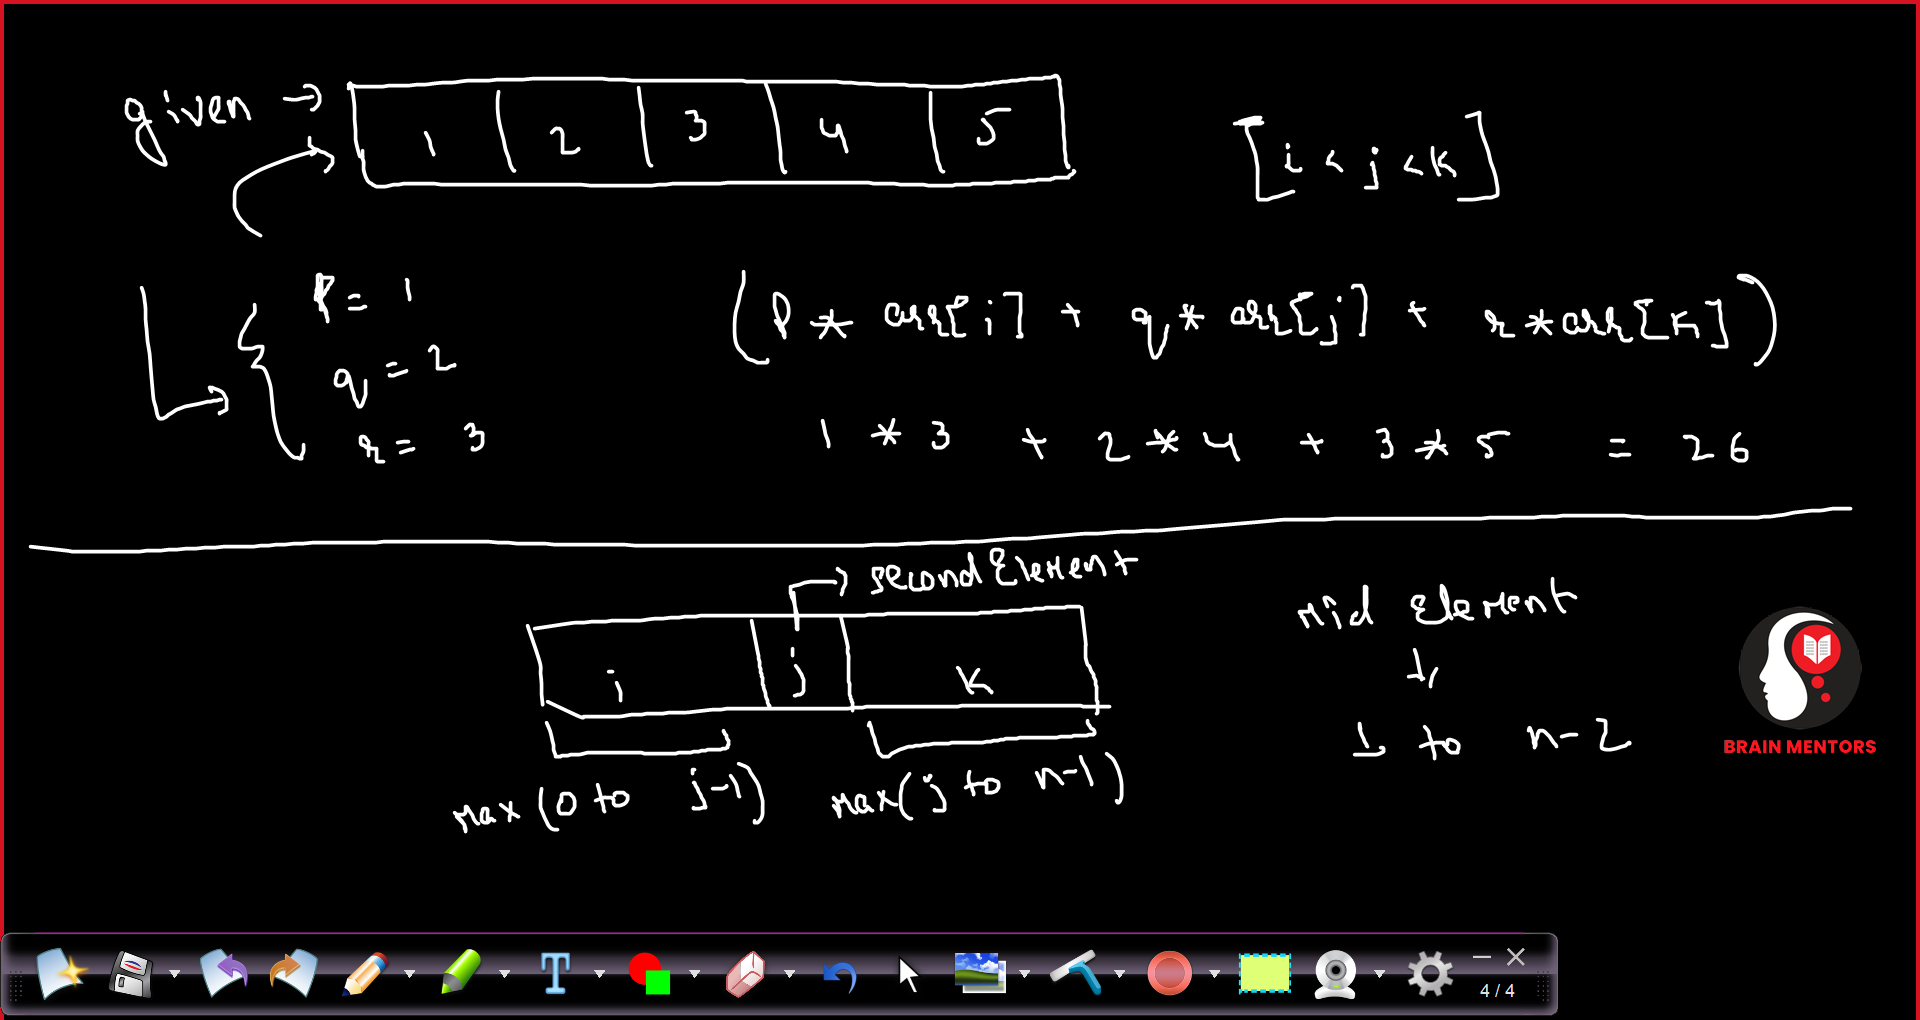 given → 1 2 3 4 5
[i < j < k]
p = 1
q = 2
r = 3
(p * arr[i] + q * arr[j] + r * arr[k])
1 * 3 + 2 * 4 + 3 * 5 = 26
second Element
i j k
max (0 to j-1) max (j to n-1)
Mid Element
↓
1 to n-2
BRAIN MENTORS
T
4 / 4